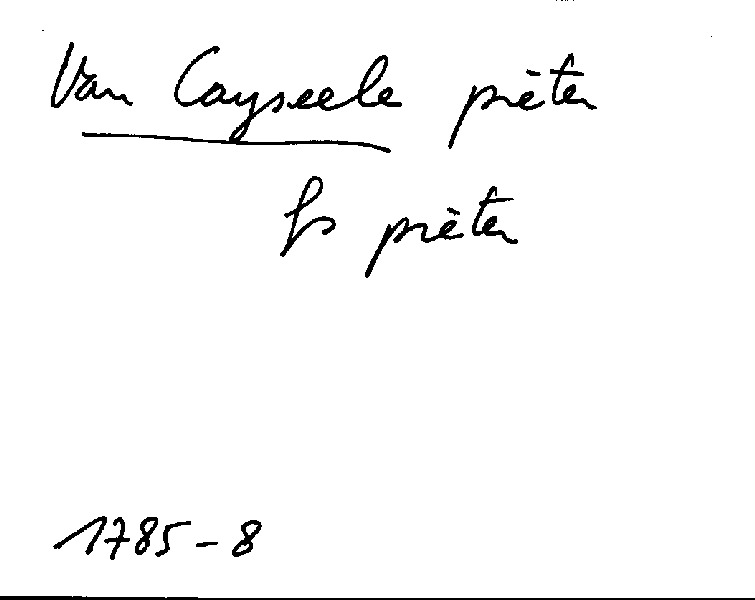 Van Cayseele pièter
fs pièter
1785-8